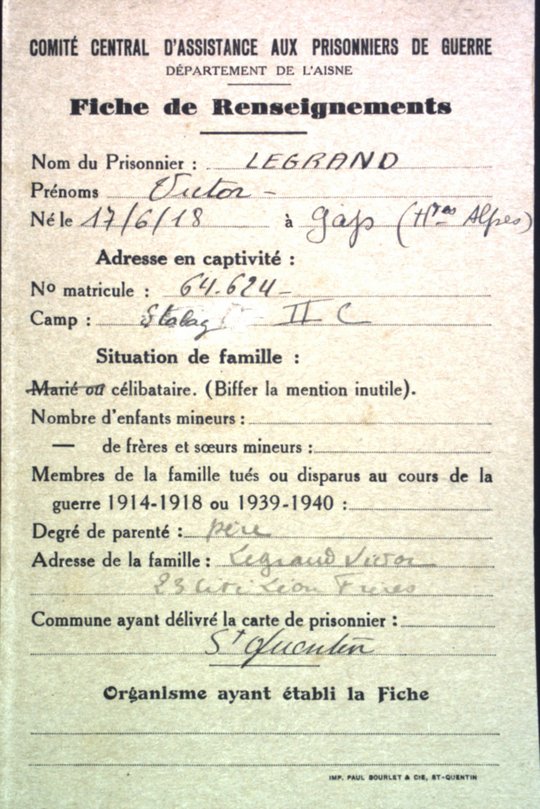 COMITÉ CENTRAL D'ASSISTANCE AUX PRISONNIERS DE GUERRE
DÉPARTEMENT DE L'AISNE
Fiche de Renseignements
Nom du Prisonnier : LEGRAND
Prénoms Victor -
Né le 17/6/18 à Gap (Htes Alpes)
Adresse en captivité :
No matricule : 64.624 -
Camp : Stalag II C
Situation de famille :
Marié ou célibataire. (Biffer la mention inutile).
Nombre d'enfants mineurs :
— de frères et sœurs mineurs :
Membres de la famille tués ou disparus au cours de la
guerre 1914-1918 ou 1939-1940 :
Degré de parenté : père
Adresse de la famille : Legrand Victor
23 cité Léon Frères
Commune ayant délivré la carte de prisonnier :
St Quentin
Organisme ayant établi la Fiche
IMP. PAUL BOURLET & CIE, ST-QUENTIN